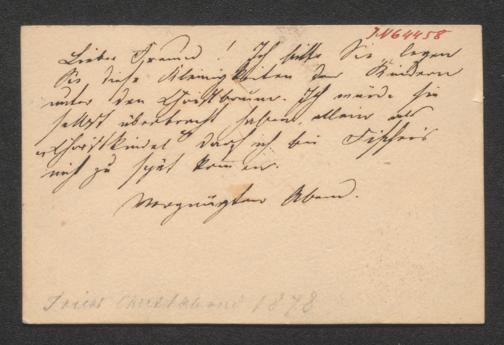 JN64458
Lieber Freund! Ich bitte Sie, legen
Sie diese Kleinigkeiten der Kindern
unter den Christbaum. Ich würde sie
selbst überbracht haben, allein als
"Christkindel" darf ich bei Fischers
nich zu spät kommen.
Vergnügten Abend.
Christabend 1878